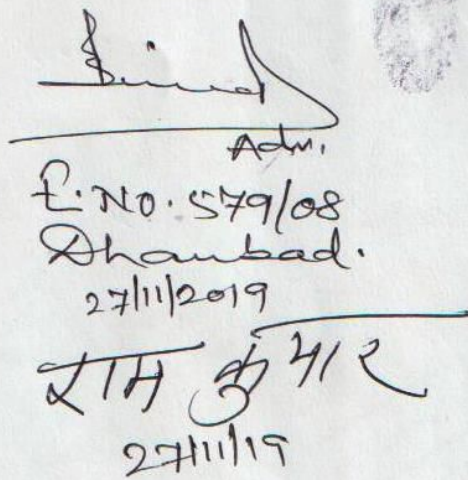 Adv.
E.NO.579/08
Dhanbad.
27/11/2019
राम कुमार
27/11/19